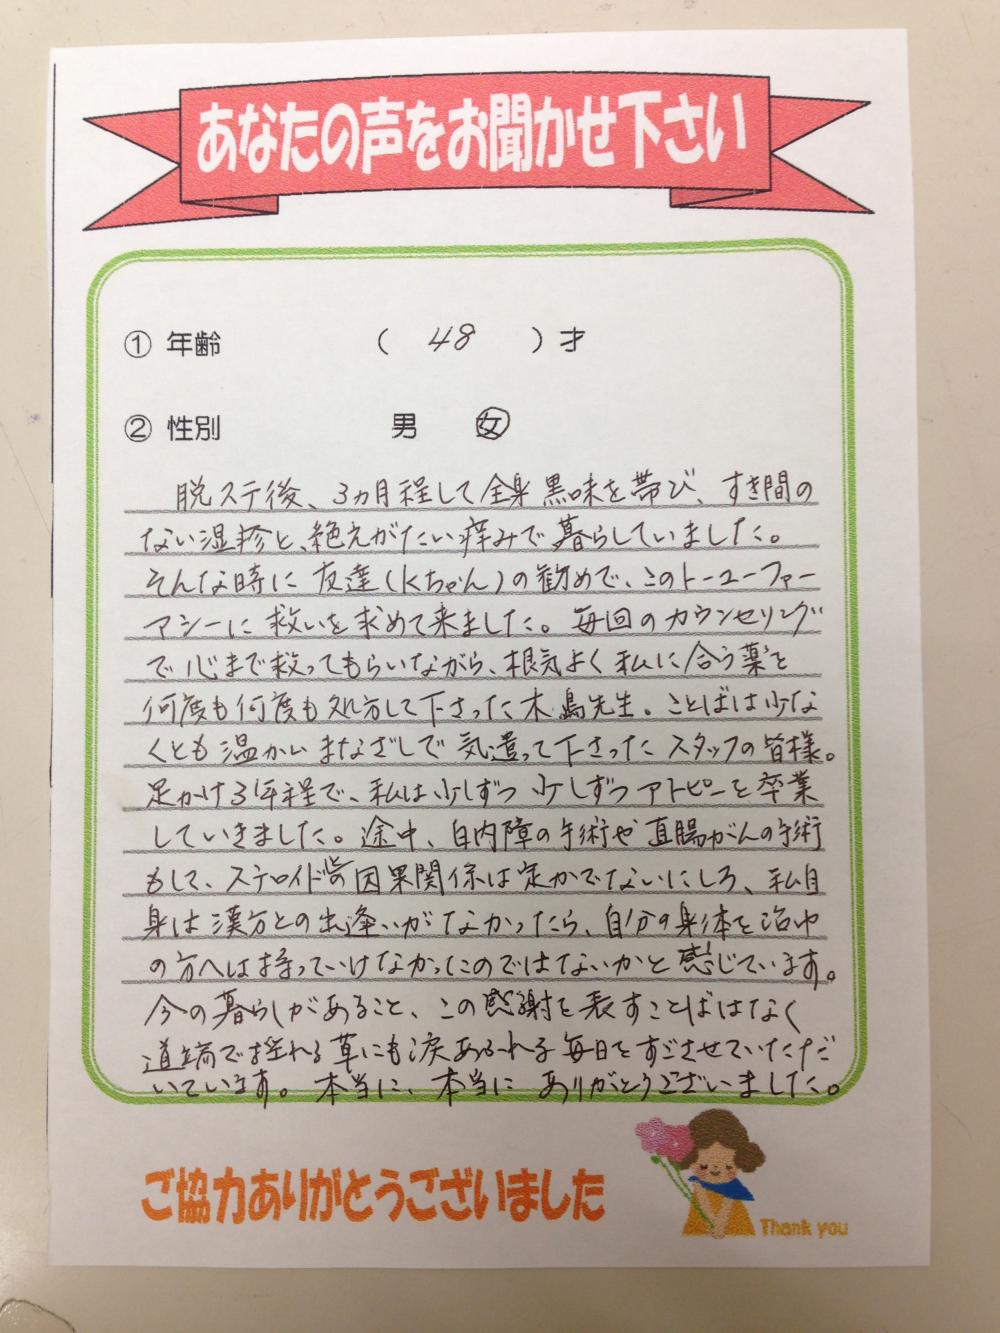 あなたの声をお聞かせ下さい
① 年齢 （ 48 ）才
② 性別 男 女
脱ステ後、3ヵ月程して全身黒味を帯び、すき間の
ない湿疹と、絶えがたい痒みで暮らしていました。
そんな時に友達(Kちゃん)の勧めで、このトーユーファー
マシーに救いを求めて来ました。毎回のカウンセリング
で心まで救ってもらいながら、根気よく私に合う薬を
何度も何度も処方して下さった木島先生。ことばは少な
くとも温かいまなざしで気遣って下さったスタッフの皆様。
足かけ3年程で、私は少しずつ少しずつアトピーを卒業
していきました。途中、白内障の手術や直腸がんの手術
もして、ステロイドの因果関係は定かでないにしろ、私自
身は漢方との出逢いがなかったら、自分の身体を治ゆ
の方へは持っていけなかったのではないかと感じています。
今の暮らしがあること、この感謝を表すことばはなく
道端で揺れる草にも涙あふれる毎日をすごさせていただ
いています。本当に、本当にありがとうございました。
ご協力ありがとうございました
Thank you